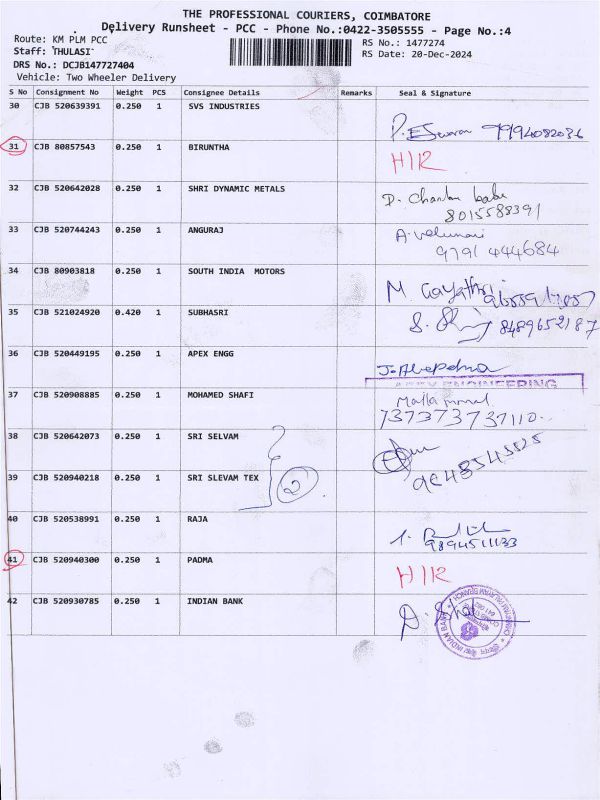 THE PROFESSIONAL COURIERS, COIMBATORE
Delivery Runsheet - PCC - Phone No.:0422-3505555 - Page No.:4
Route: KM PLM PCC
RS No.: 1477274
Staff: THULASI
RS Date: 20-Dec-2024
DRS No.: DCJB147727404
Vehicle: Two Wheeler Delivery
S No Consignment No Weight PCS Consignee Details Remarks Seal & Signature
30 CJB 520639391 0.250 1 SVS INDUSTRIES
P. Eswaran 9994082036
31 CJB 80857543 0.250 1 BIRUNTHA
H/R
32 CJB 520642028 0.250 1 SHRI DYNAMIC METALS
D. Chandan babu
8015588391
33 CJB 520744243 0.250 1 ANGURAJ
A. Velumani
9791 444684
34 CJB 80903818 0.250 1 SOUTH INDIA MOTORS
M. Gayathri
35 CJB 521024920 0.420 1 SUBHASRI
S. 8489652187
36 CJB 520449195 0.250 1 APEX ENGG
APEX ENGINEERING
37 CJB 520908885 0.250 1 MOHAMED SHAFI
737373737110
38 CJB 520642073 0.250 1 SRI SELVAM
39 CJB 520940218 0.250 1 SRI SLEVAM TEX
2
40 CJB 520538991 0.250 1 RAJA
9894511133
41 CJB 520940300 0.250 1 PADMA
H/R
42 CJB 520930785 0.250 1 INDIAN BANK
INDIAN BANK